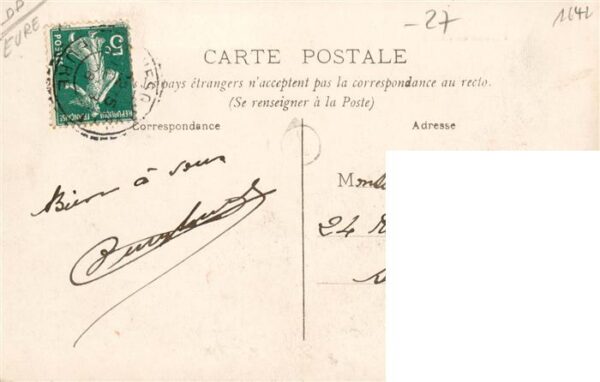 DP
EURE
-27
1642
5
POSTES
REPUBLIQUE FRANÇAISE
EURE
CARTE POSTALE
pays étrangers n'acceptent pas la correspondance au recto.
(Se renseigner à la Poste)
Correspondance
Adresse
Bien à vous
M
24